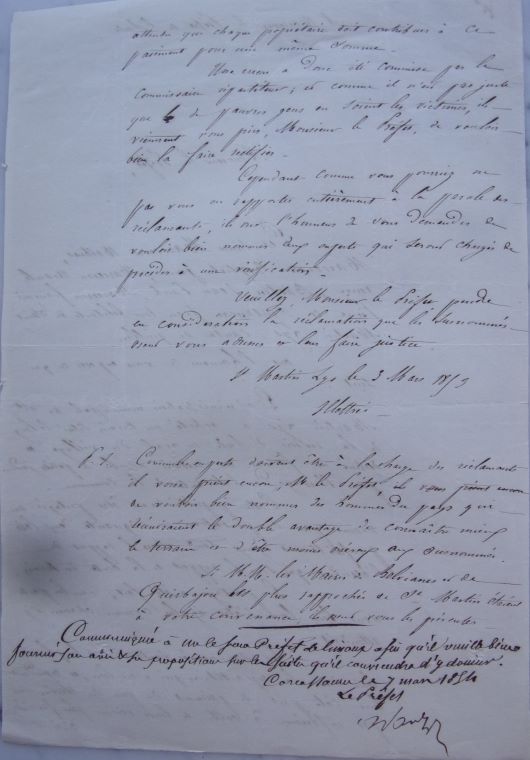 attendu que chaque propriétaire doit contribuer à ce
paiement pour une même somme.
Une erreur a donc été commise par le
Commissaire répartiteur, et comme il n'est pas juste
que de pauvres gens en soient les victimes, ils
viennent vous prier, Monsieur le Préfet, de vouloir
bien la faire rectifier.
Cependant comme vous pourriez ne
pas vous en rapporter entièrement à la parole des
réclamants, ils ont l'honneur de vous demander de
vouloir bien nommer des experts qui seront chargés de
procéder à une vérification.
Veuillez Monsieur le Préfet prendre
en considération la réclamation que les susnommés
osent vous adresser et leur faire justice.
St Martin Lys le 3 Mars
Illettrés
P.S. Comme experts doivent être à la charge des réclamants
ils vous prient encore, M. le Préfet,
de vouloir bien nommer des hommes du pays qui
réuniraient le double avantage de connaître mieux
le terrain et d'être moins onéreux aux susnommés.
Si M.M. les Maires de Belvianes et de
Quirbajou plus rapprochés de St Martin étaient
à votre convenance ils vous les présenter
Communiqué à M. le Sous Préfet de Limoux afin qu'il veuille bien
fournir son avis & sa proposition sur la suite qu'il conviendra d'y donner.
Carcassonne le 7 mars 1854
Le Préfet